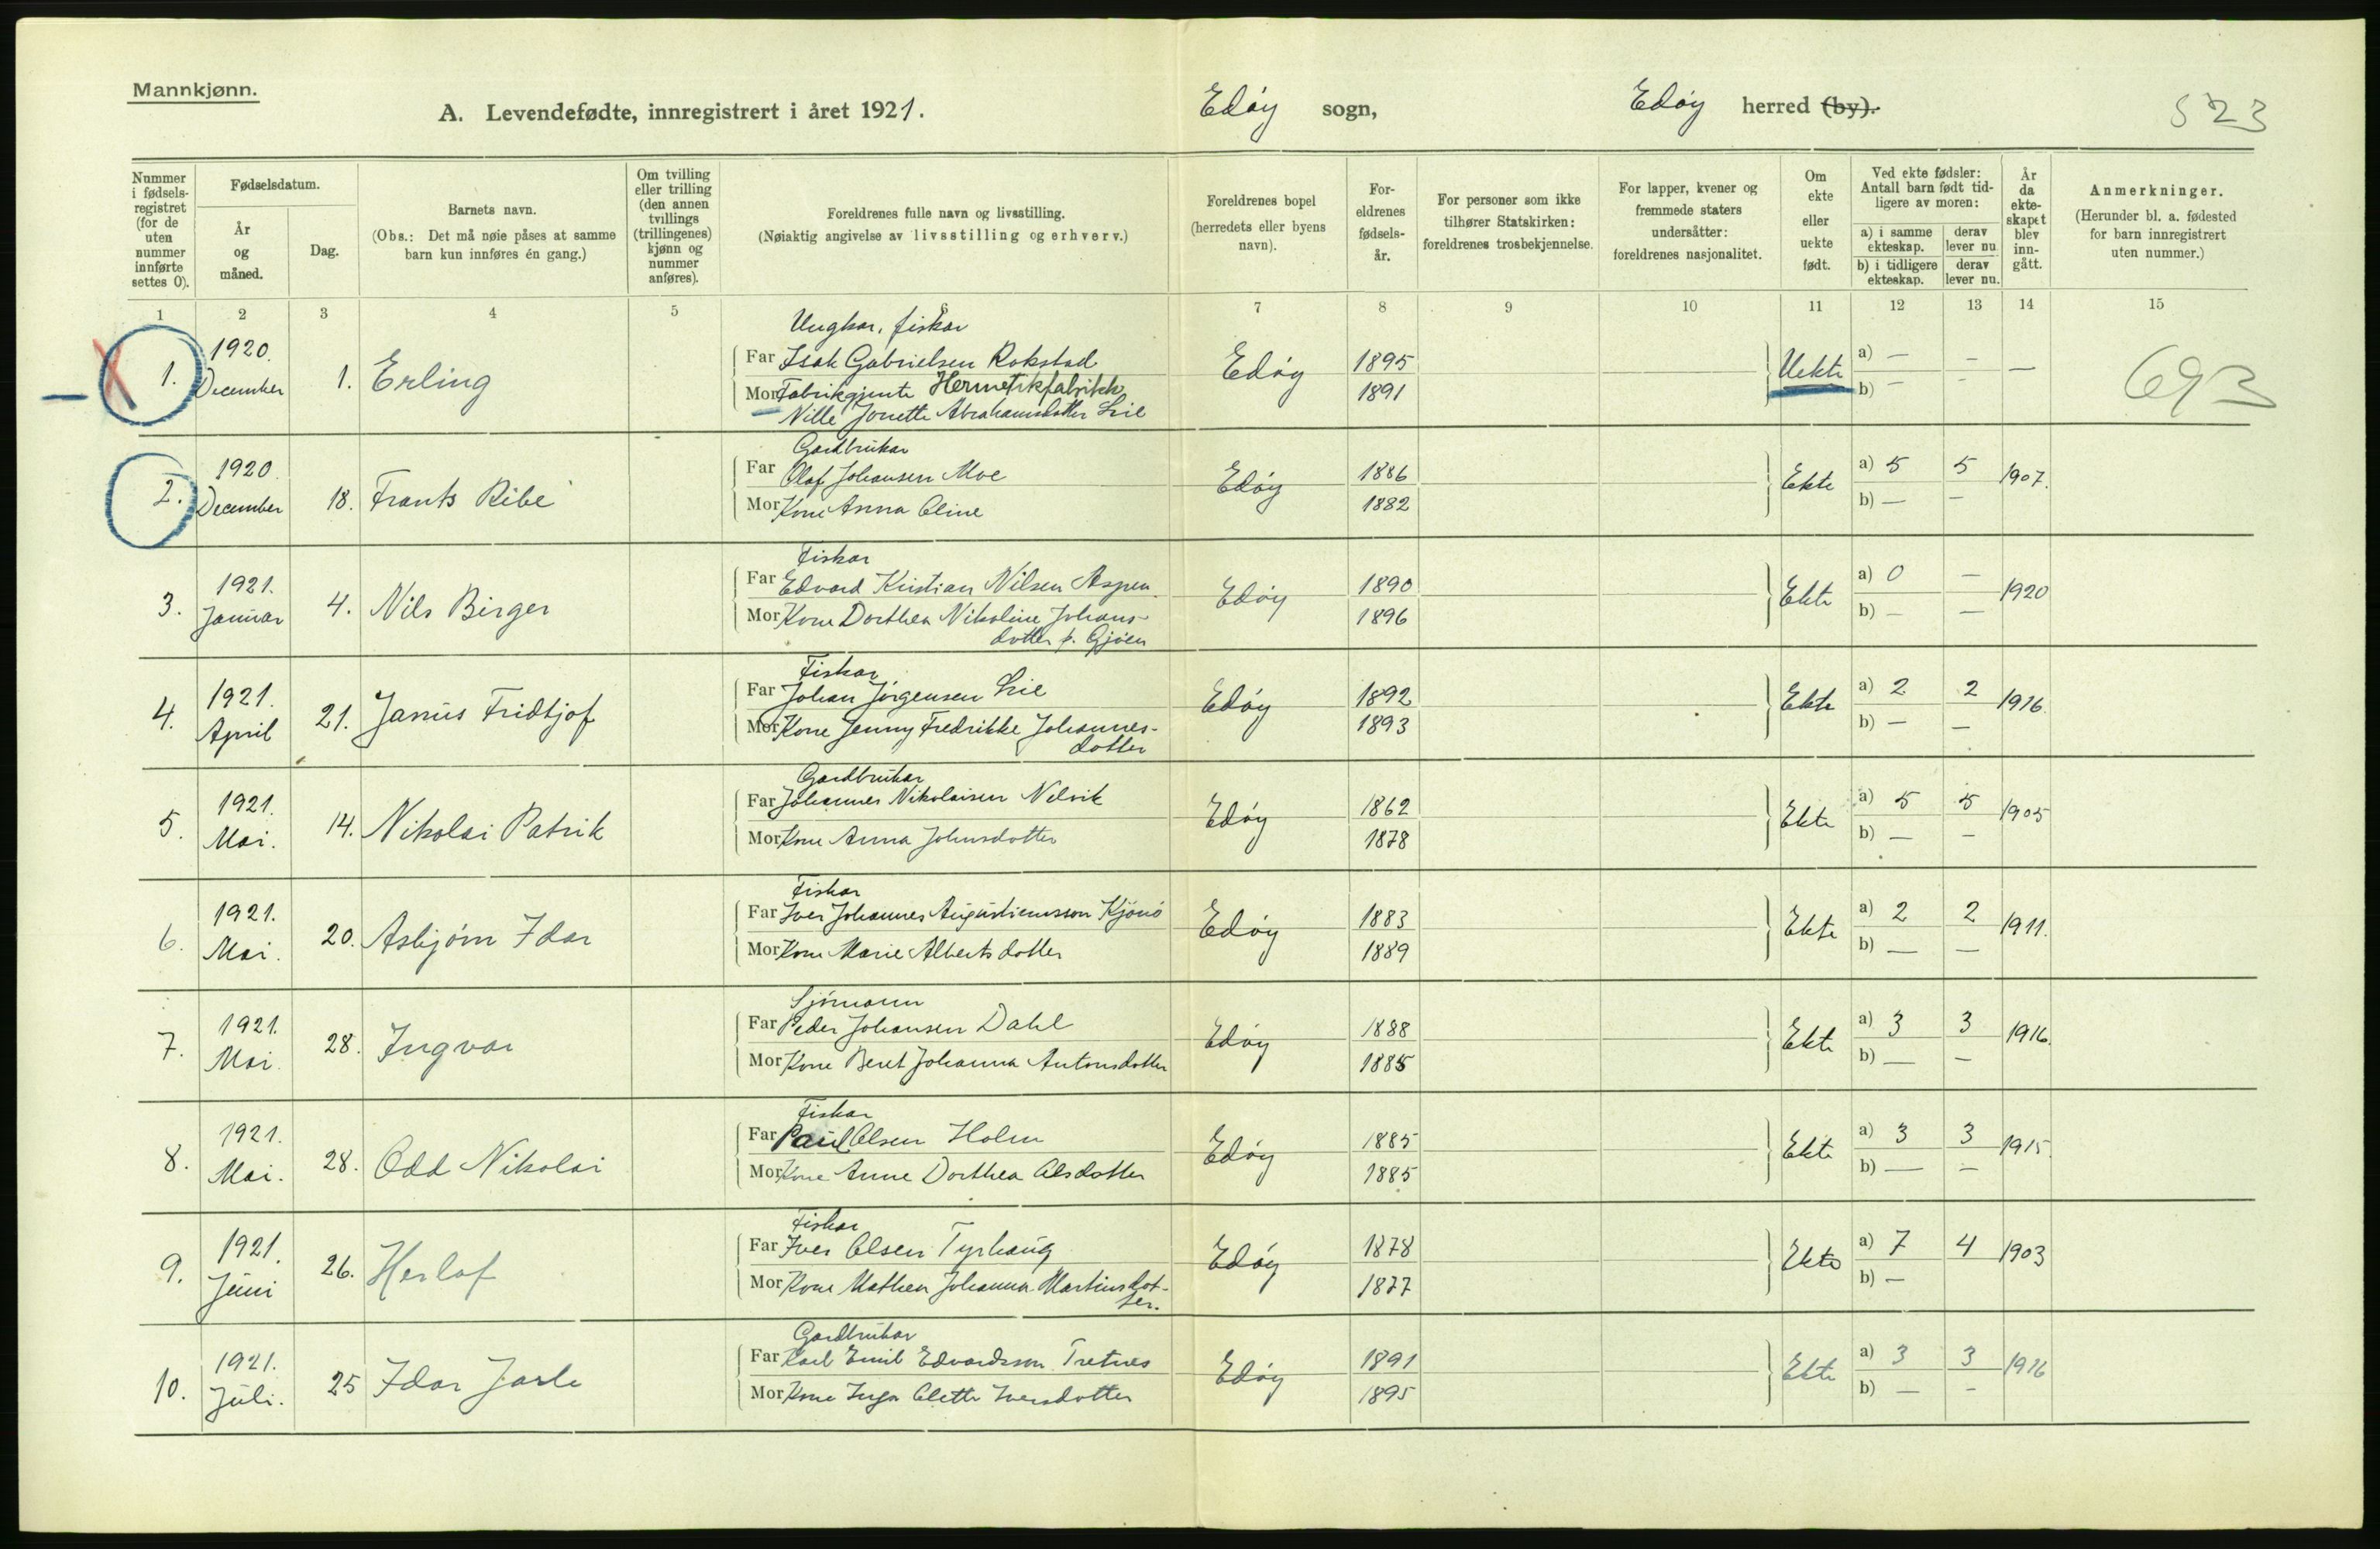 Mannkjønn.
A. Levendefødte, innregistrert i året 1921.
Edøy sogn,
Edøy herred (by).
523
Nummer i fødsels-registret (for de uten nummer innførte settes 0).
Fødselsdatum.
År og måned.
Dag.
Barnets navn.
(Obs.: Det må nøie påses at samme barn kun innføres én gang.)
Om tvilling eller trilling (den annen tvillings (trillingenes) kjønn og nummer anføres).
Foreldrenes fulle navn og livsstilling.
(Nøiaktig angivelse av livsstilling og erhverv.)
Foreldrenes bopel (herredets eller byens navn).
For-eldrenes fødsels-år.
For personer som ikke tilhører Statskirken: foreldrenes trosbekjennelse.
For lapper, kvener og fremmede staters undersåtter: foreldrenes nasjonalitet.
Om ekte eller uekte født.
Ved ekte fødsler: Antall barn født tid-ligere av moren:
a) i samme ekteskap.
derav lever nu
b) i tidligere ekteskap.
derav lever nu.
År da ekte-skapet blev inn-gått.
Anmerkninger.
(Herunder bl. a. fødested for barn innregistrert uten nummer.)
1 2 3 4 5 6 7 8 9 10 11 12 13 14 15
Ungkar, fiskar
1. 1920. December 1. Erling
Far Isak Gabrielsen Rokstad Edøy 1895 Uekte a) — — —
Mor Fabrikgjente Hermetikfabrikk 1891 b) — —
Nille Jonette Abrahamsdotter Lie
693
Gardbrukar
2. 1920 December 18. Frants Ribe
Far Olaf Johansen Moe Edøy 1886 Ekte a) 5 5 1907.
Mor Kone Anna Oline 1882 b) — —
Fiskar
3. 1921. Januar 4. Nils Birger
Far Edvard Kristian Nilsen Aspen. Edøy 1890 Ekte a) 0 — 1920
Mor Kone Dorthea Nikoline Johans- 1896 b) — —
dotter f. Gjøen
Fiskar
4. 1921. April 21. Janus Fridtjof
Far Johan Jörgensen Lie Edøy 1892 Ekte a) 2 2 1916.
Mor Kone Jenny Fredrikke Johannes- 1893 b) — —
dotter
Gardbrukar
5. 1921. Mai. 14. Nikolai Patrik
Far Johannes Nikolaisen Nelvik Edøy 1862 Ekte a) 5 5 1905
Mor Kone Anna Johnsdotter 1878 b) — —
Fiskar
6. 1921. Mai. 20. Asbjörn Idar
Far Iver Johannes Augustiensson Kjönö Edøy 1883 Ekte a) 2 2 1911.
Mor Kone Marie Alberts dotter 1889 b) — —
Sjömann
7. 1921. Mai 28. Ingvar
Far Peder Johansen Dahl Edøy 1888 Ekte a) 3 3 1916.
Mor Kone Beret Johanna Antonsdotter 1885 b) — —
Fiskar
8. 1921. Mai. 28. Odd Nikolai
Far Paul Olsen Holm Edøy 1885 Ekte a) 3 3 1915
Mor Kone Anne Dorthea Olsdotter 1885 b) — —
Fiskar
9. 1921. Juni 26. Herlof
Far Iver Olsen Tyrhaug Edøy 1878 Ekte a) 7 4 1903
Mor Kone Mathea Johanna Martinsdot- 1877 b) —
ter.
Gardbrukar
10. 1921. Juli. 25 Idar Jarle
Far Karl Emil Edvardsson Tretnes Edøy 1891 Ekte a) 3 3 1916
Mor Kone Inga Olette Iversdotter 1895 b) — —